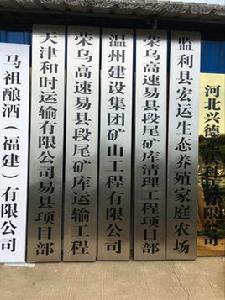 马祖酿酒（福建）有限公司
天津和时运输有限公司易县项目部
荣乌高速易县段尾矿库运输工程
温州建设集团矿山工程有限公司
荣乌高速易县段尾矿库清理工程项目部
监利县宏运生态养殖家庭农场
河北兴德
有限公司